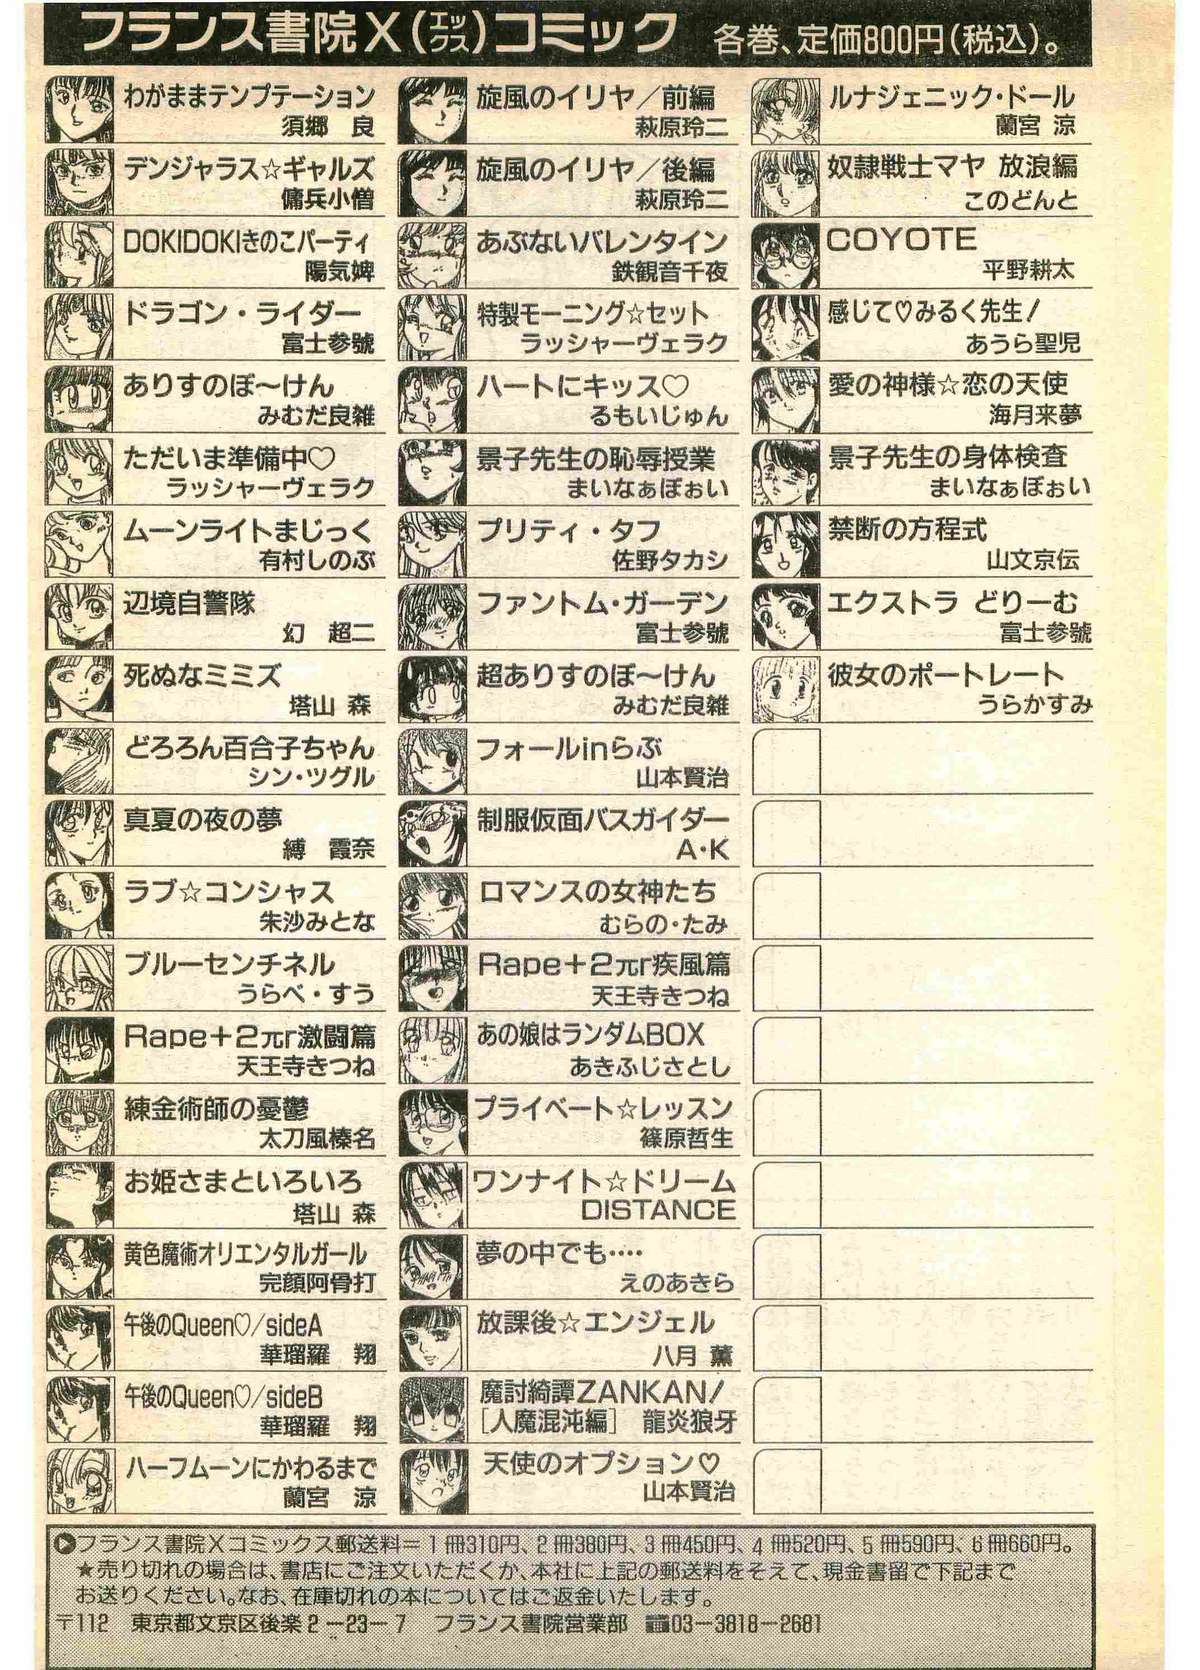 フランス書院X(エックス)コミック 各巻、定価800円(税込)。
わがままテンプテーション
須郷 良
デンジャラス☆ギャルズ
傭兵小僧
DOKIDOKIきのこパーティ
陽気婢
ドラゴン・ライダー
富士参號
ありすのぼ〜けん
みむだ良雑
ただいま準備中♡
ラッシャーヴェラク
ムーンライトまじっく
有村しのぶ
辺境自警隊
幻 超二
死ぬなミミズ
塔山 森
どろろん百合子ちゃん
シン・ツグル
真夏の夜の夢
縛 霞奈
ラブ☆コンシャス
朱沙みとな
ブルーセンチネル
うらべ・すう
Rape+2πr激闘篇
天王寺きつね
錬金術師の憂鬱
太刀風榛名
お姫さまといろいろ
塔山 森
黄色魔術オリエンタルガール
完顔阿骨打
午後のQueen♡/sideA
華瑠羅 翔
午後のQueen♡/sideB
華瑠羅 翔
ハーフムーンにかわるまで
蘭宮 涼
旋風のイリヤ/前編
萩原玲二
旋風のイリヤ/後編
萩原玲二
あぶないバレンタイン
鉄観音千夜
特製モーニング☆セット
ラッシャーヴェラク
ハートにキッス♡
るもいじゅん
景子先生の恥辱授業
まいなぁぼぉい
プリティ・タフ
佐野タカシ
ファントム・ガーデン
富士参號
超ありすのぼ〜けん
みむだ良雑
フォールinらぶ
山本賢治
制服仮面バスガイダー
A・K
ロマンスの女神たち
むらの・たみ
Rape+2πr疾風篇
天王寺きつね
あの娘はランダムBOX
あきふじさとし
プライベート☆レッスン
篠原哲生
ワンナイト☆ドリーム
DISTANCE
夢の中でも‥‥
えのあきら
放課後☆エンジェル
八月 薫
魔討綺譚ZANKAN!
[人魔混沌編] 龍炎狼牙
天使のオプション♡
山本賢治
ルナジェニック・ドール
蘭宮 涼
奴隷戦士マヤ 放浪編
このどんと
COYOTE
平野耕太
感じて♡みるく先生!
あうら聖児
愛の神様☆恋の天使
海月来夢
景子先生の身体検査
まいなぁぼぉい
禁断の方程式
山文京伝
エクストラ どりーむ
富士参號
彼女のポートレート
うらかすみ
フランス書院Xコミックス郵送料=1冊310円、2冊380円、3冊450円、4冊520円、5冊590円、6冊660円。
★売り切れの場合は、書店にご注文いただくか、本社に上記の郵送料をそえて、現金書留で下記まで
お送りください。なお、在庫切れの本についてはご返金いたします。
〒112 東京都文京区後楽2-23-7 フランス書院営業部 ☎03-3818-2681